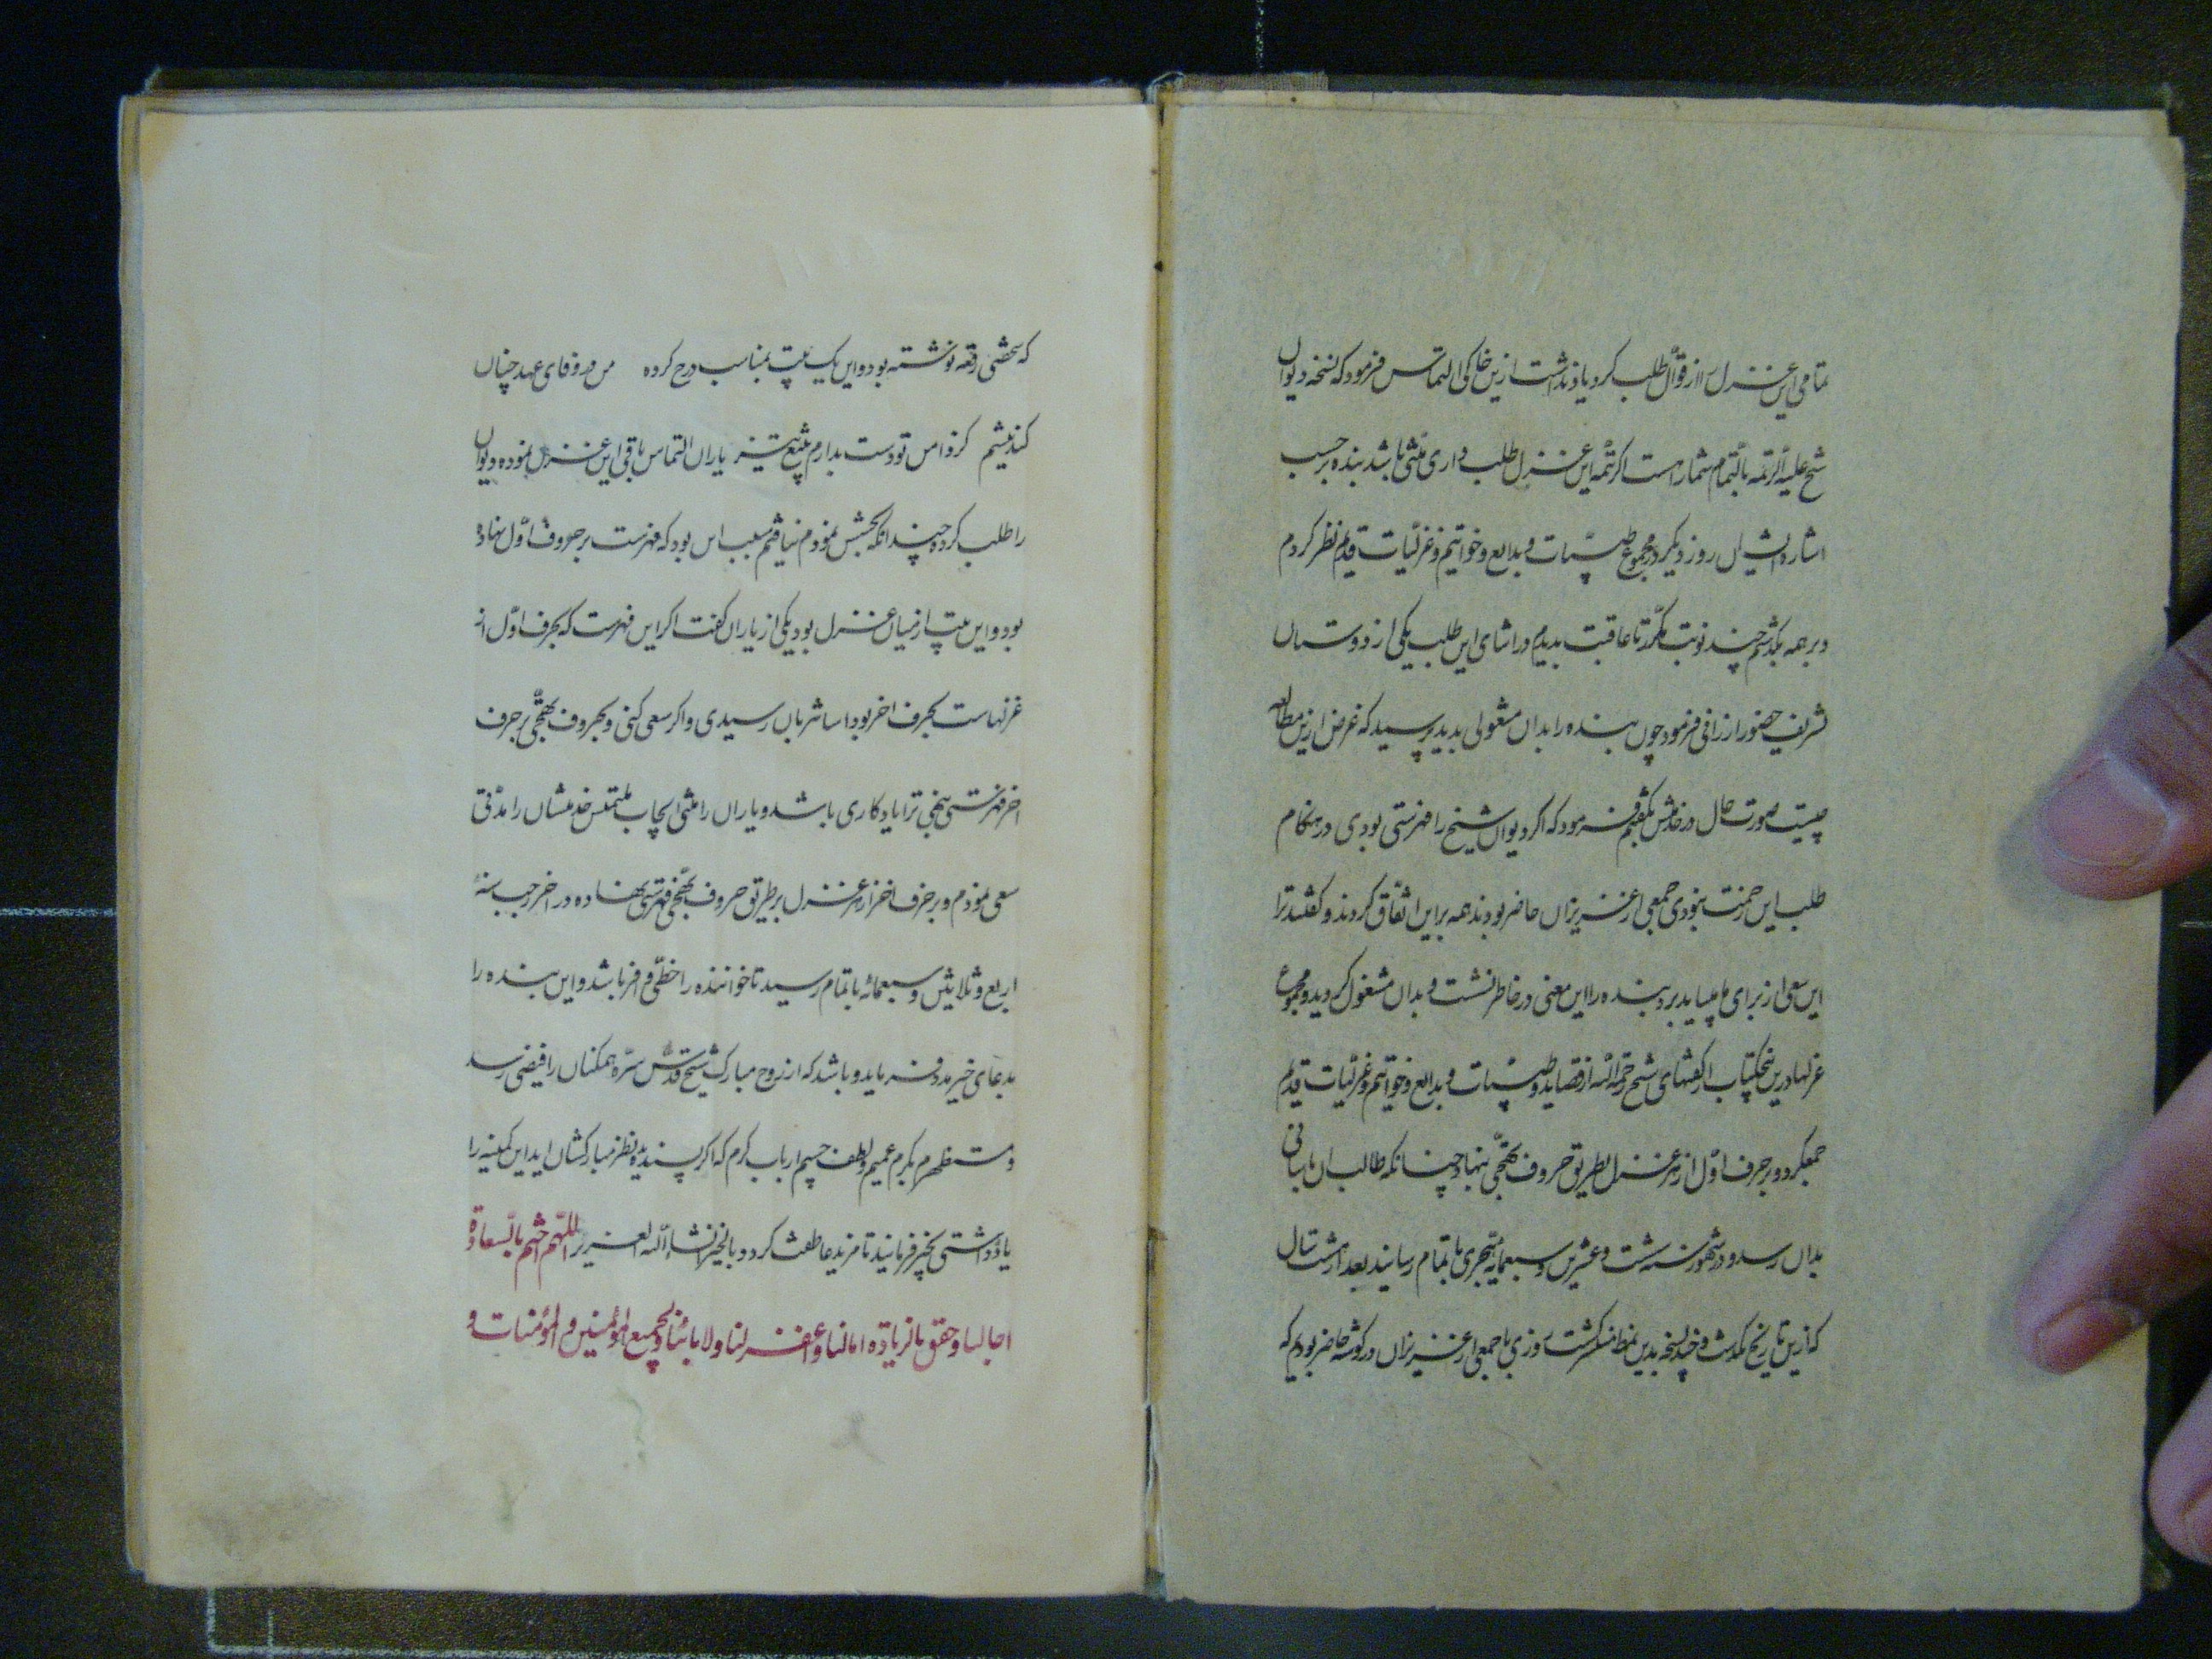 تمامی این غزل را از قوال طلب کرد یاد نداشت ازین خاکی التماس فرمود که نسخه دیوان
شیخ علیه الرحمه بالتمام شما راست اکر تتمه این غزل طلب داری منتی باشد بنده بر حسب
اشاره ایشان روز دیکر در مجموع طیبات و بدایع و خواتیم و غزلیات قدیم نظر کردم
و بر همه بکذشتم چند نوبت مکرر تا عاقبت بدیدم در اثنای این طلب یکی از دوستان
تشریف حضور ارزانی فرمود چون بنده را بدان مشغولی بدید پرسید که غرض ازین مطالعه
چیست صورت حال در خدمتش بکفتم فرمود که اکر دیوان شیخ را فهرستی بودی در هنکام
طلب این زحمت نبودی جمعی از عزیزان حاضر بودند همه برین اتفاق کردند و کفتند ترا
این سعی از برای ما بباید برد بنده را این معنی در خاطر نشست و بدان مشغول کردید و مجموع
غزلها درین کتاب از کفتهای شیخ رحمه الله از قصاید و طیبات و بدایع و خواتیم و غزلیات قدیم
جمع کرد و بر حرف اول از هر غزل بطریق حروف تهجی بنهاد چنانکه طالب ان باسانی
بدان رسد و در شهور سنه ست و عشرین و سبعمایه هجری باتمام رسانید بعد از هشت سال
که ازین تاریخ بکذشت و چند نسخه بدین نمط منتشر کشت روزی با جمعی از عزیزان در کوشه حاضر بودیم که
که شخصی رقعه نوشته بود و این یک بیت بمناسب درج کرده من در وفای عهد چنان
کند نیستم کز دامن تو دست بدارم بتیغ تیز یاران التماس باقی این غزل نموده دیوان
را طلب کرده چندانکه بجستش نمودم نیافتم سبب ان بود که فهرست بر حروف اول نهاده
بود و این بیت از میان غزل بود یکی از یاران کفت اکر این فهرست که بحرف اول از
غزلهاست بحرف اخر بود اسانتر بان رسیدی و اکر سعی کنی و بحروف تهجی بر حرف
اخر فهرستی بنهی ترا یادکاری باشد و یاران را منتی ایجاب ملتمس خدمتشان را مدتی
سعی نمودم و بر حرف اخر از هر غزل بر طریق حروف تهجی فهرستی بنهاده در اخر رجب سنه
اربع و ثلاثین و سبعمائه باتمام رسید تا خواننده را حظی وافر باشد و این بنده را
بدعای خیر مدد فرماید و باشد که از روح مبارک شیخ قدس سره همکنان را فیضی رسد
و مستظهرم بکرم عمیم و لطف جسیم ارباب کرم که اکر پسندیده نظر مبارکشان اید این کمینه را
یادداشتی بخیر فرمایند تا مزید عاطفت کردد بالخیر انشاء الله العزیز اللهم اختم بالسعادة
اجالنا و حقق بالزیادة امالنا و اغفر لنا ولابائنا و لجمیع المؤمنین و المؤمنات و